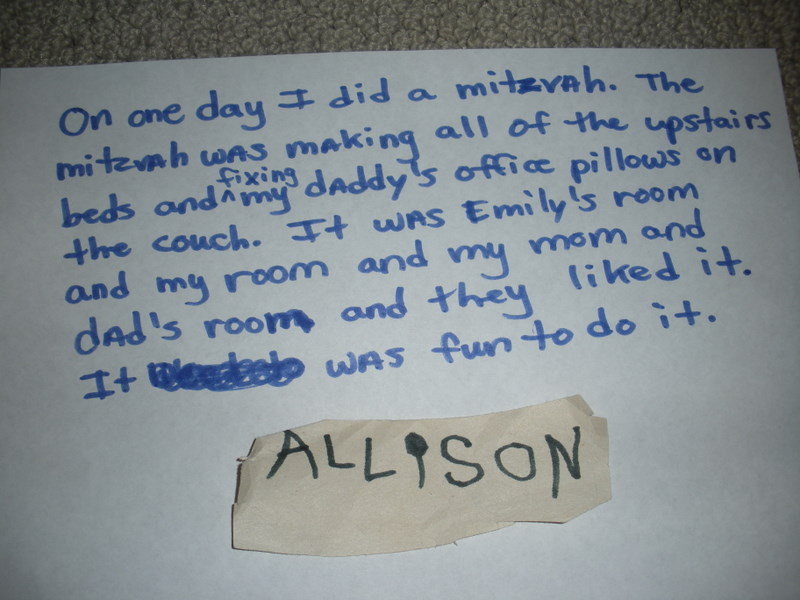 On one day I did a mitzvah. The
mitzvah was making all of the upstairs
beds and fixing my daddy's office pillows on
the couch. It was Emily's room
and my room and my mom and
dad's room and they liked it.
It was fun to do it.
ALLISON